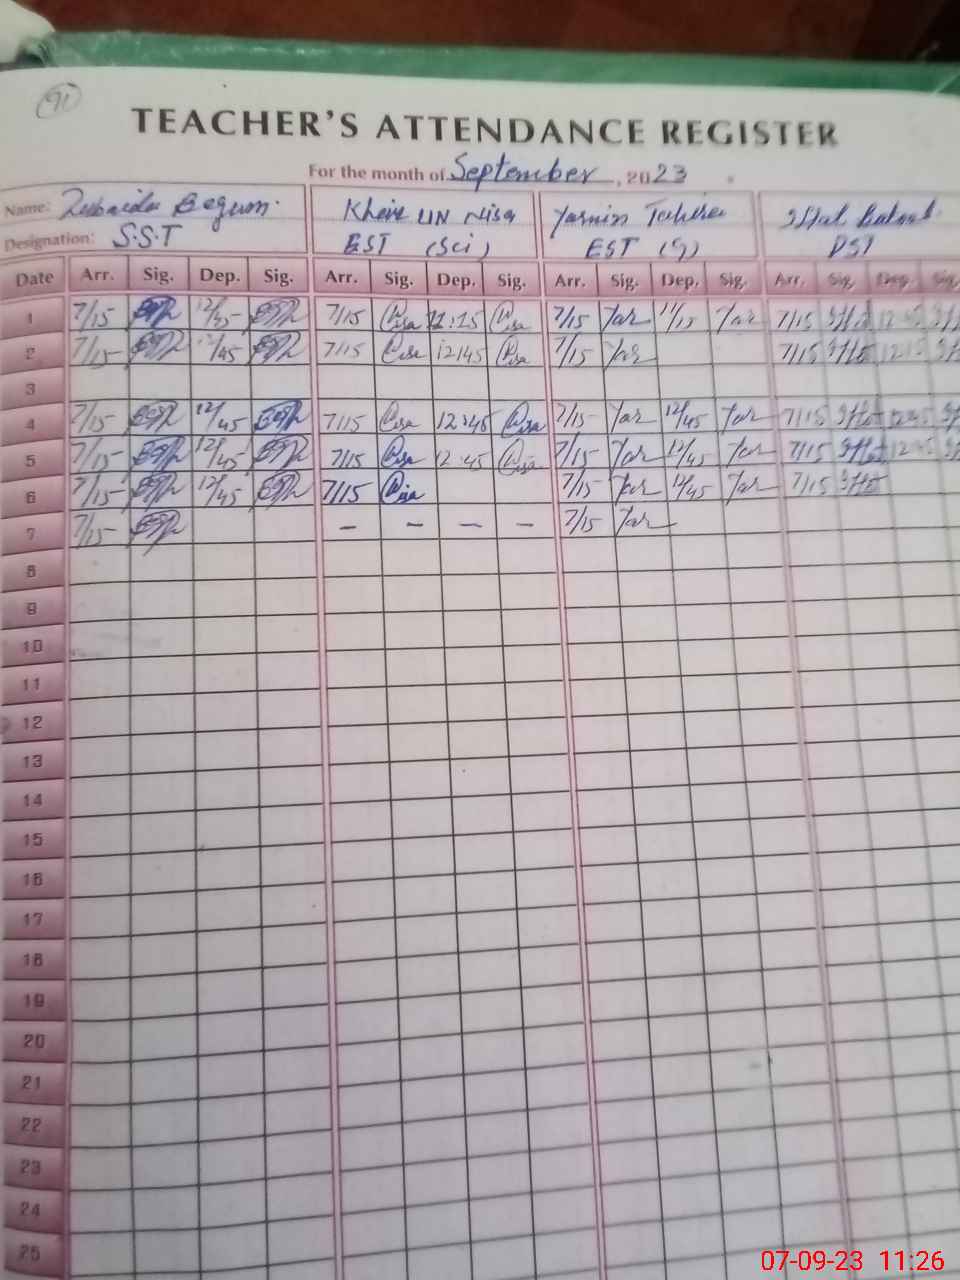 91
TEACHER'S ATTENDANCE REGISTER
For the month of September, 2023
Name: Zubaida Begum. Khair UN Nisa Yasmin Tahira
Designation: S.S.T EST (Sci) EST (G) DST
Date Arr. Sig. Dep. Sig. Arr. Sig. Dep. Sig. Arr. Sig. Dep. Sig. Arr. Sig. Dep. Sig.
1 7/15 7/15 11:15 7/15 Yar 11/15 Yar 7/15
2 7/15 12/45 7/15 12145 7/15 Yar 7/15
3
4 7/15 12/45 7/15 12:45 7/15 Yar 12/45 Yar 7/15
5 7/15 12/45 7/15 12:45 7/15 Yar 12/45 Yar 7/15
6 7/15 12/45 7/15 7/15 Yar 12/45 Yar 7/15
7 7/15 – – – – 7/15 Yar
8
9
10
11
12
13
14
15
16
17
18
19
20
21
22
23
24
25
07-09-23 11:26